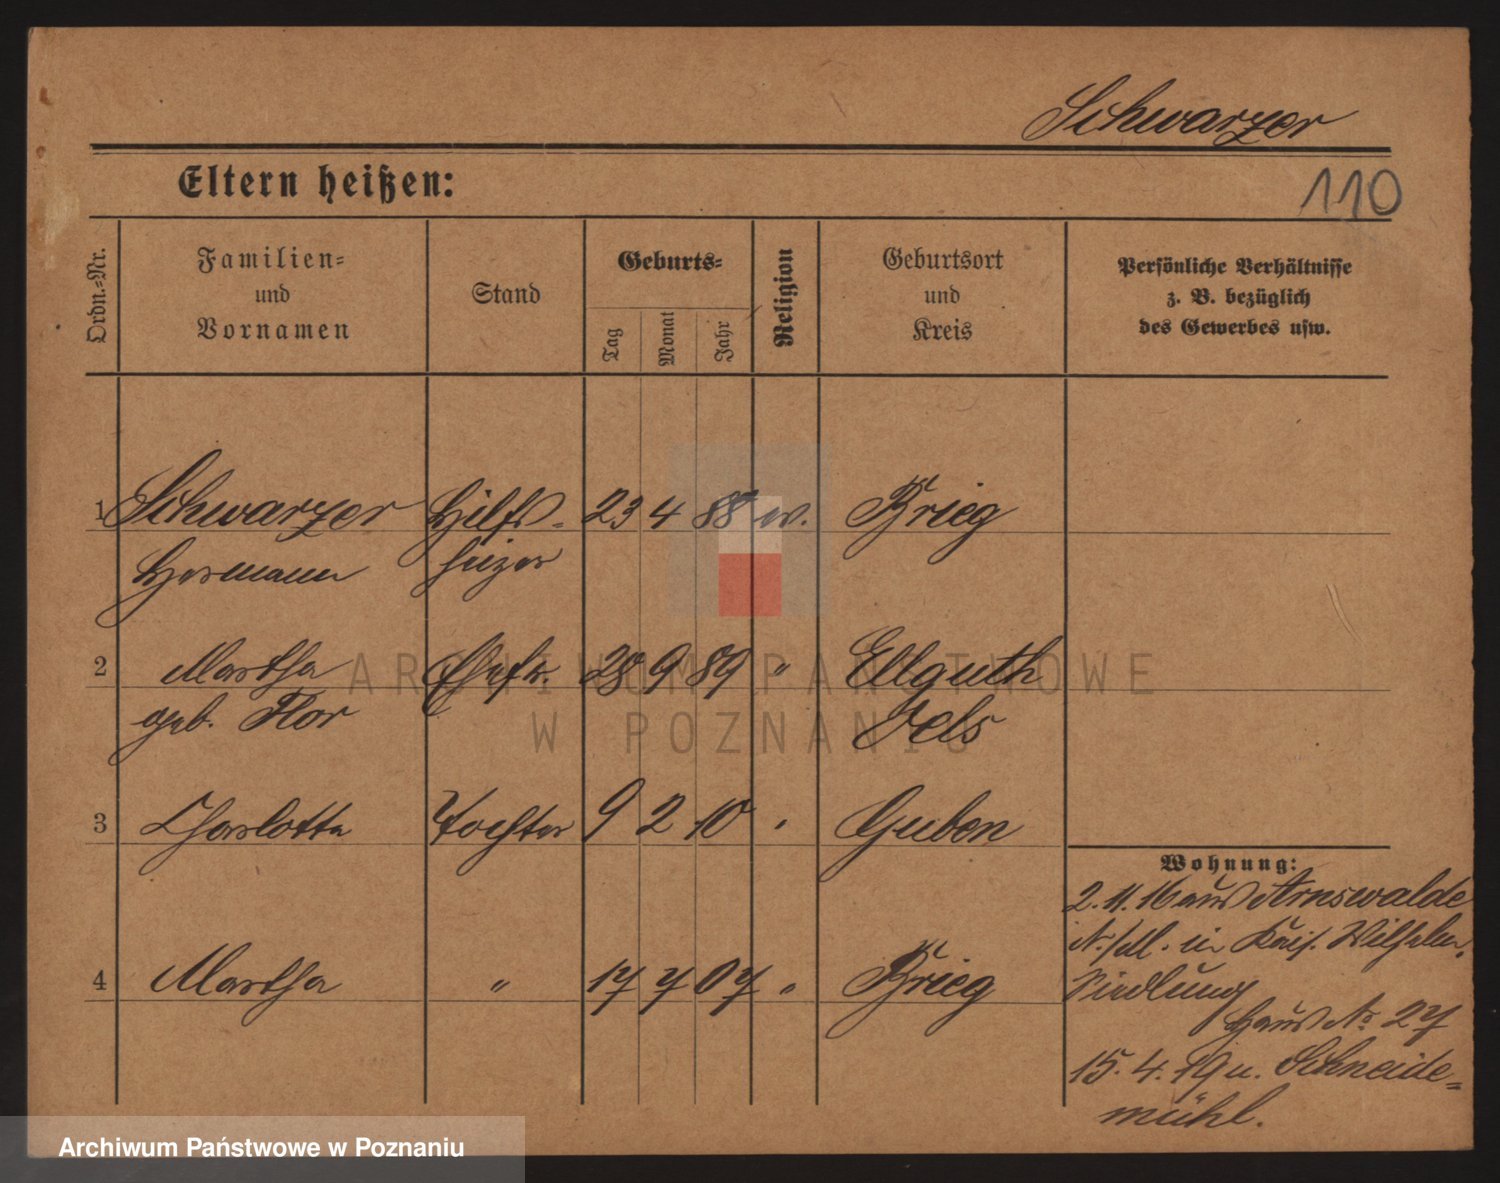 Schwarzer
110
Eltern heißen:
Ordn.-Nr.
Familien-
und
Vornamen
Stand
Geburts-
Tag
Monat
Jahr
Religion
Geburtsort
und
Kreis
Persönliche Verhältnisse
z. B. bezüglich
des Gewerbes usw.
1 Schwarzer Hilfs- 23 4 88 ev. Brieg
Hermann heizer
2 Martha Ehefr. 28 9 89 " Ellguth
geb. Flor Oels
3 Charlotte Tochter 9 2 10 " Guben
4 Martha " 17 7 07 " Brieg
Wohnung:
2. 11. 16 aus Arnswalde
N./M. in Kais. Wilhelm-
Siedlung
Haus No 27
15. 4. 19 n. Schneide-
mühl.
ARCHIWUM PAŃSTWOWE
W POZNANIU
Archiwum Państwowe w Poznaniu